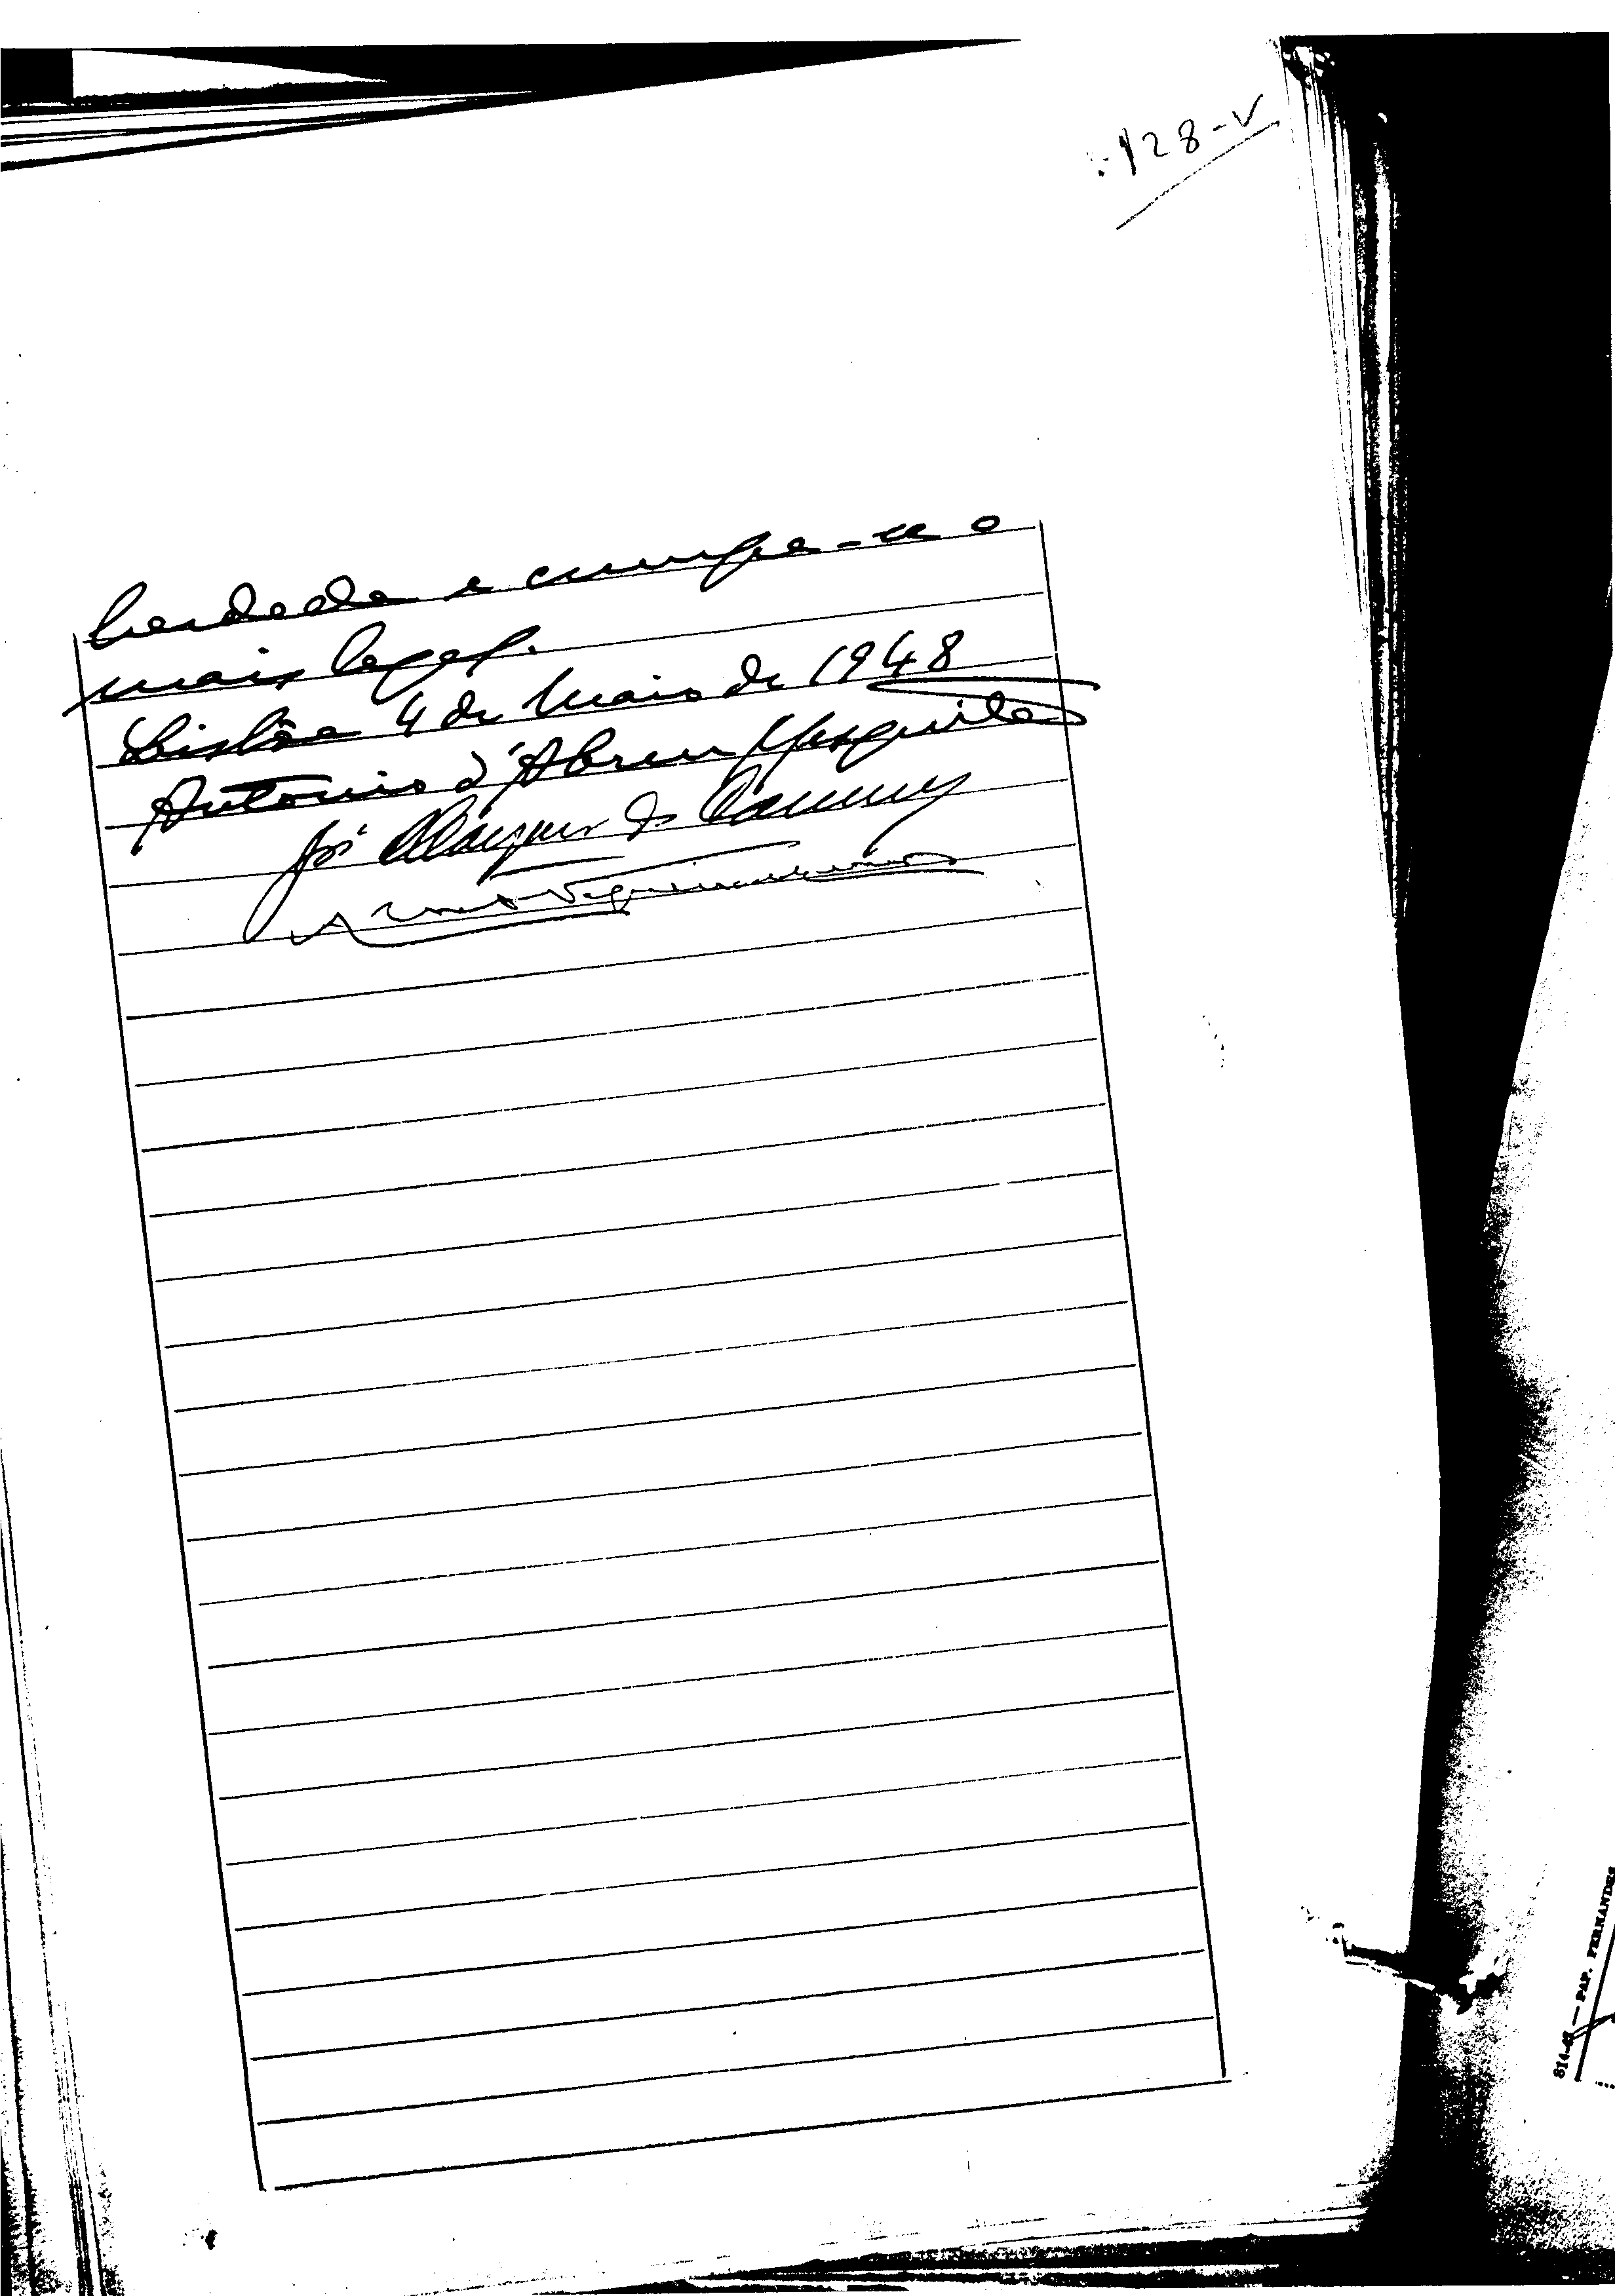 128-V
herdade e cumpra-se o
mais legal.
Lisbôa 4 de Maio de 1948
Antonio d'Abreu Mesquita
José Marques de
814-47 — PAP. FERNANDES